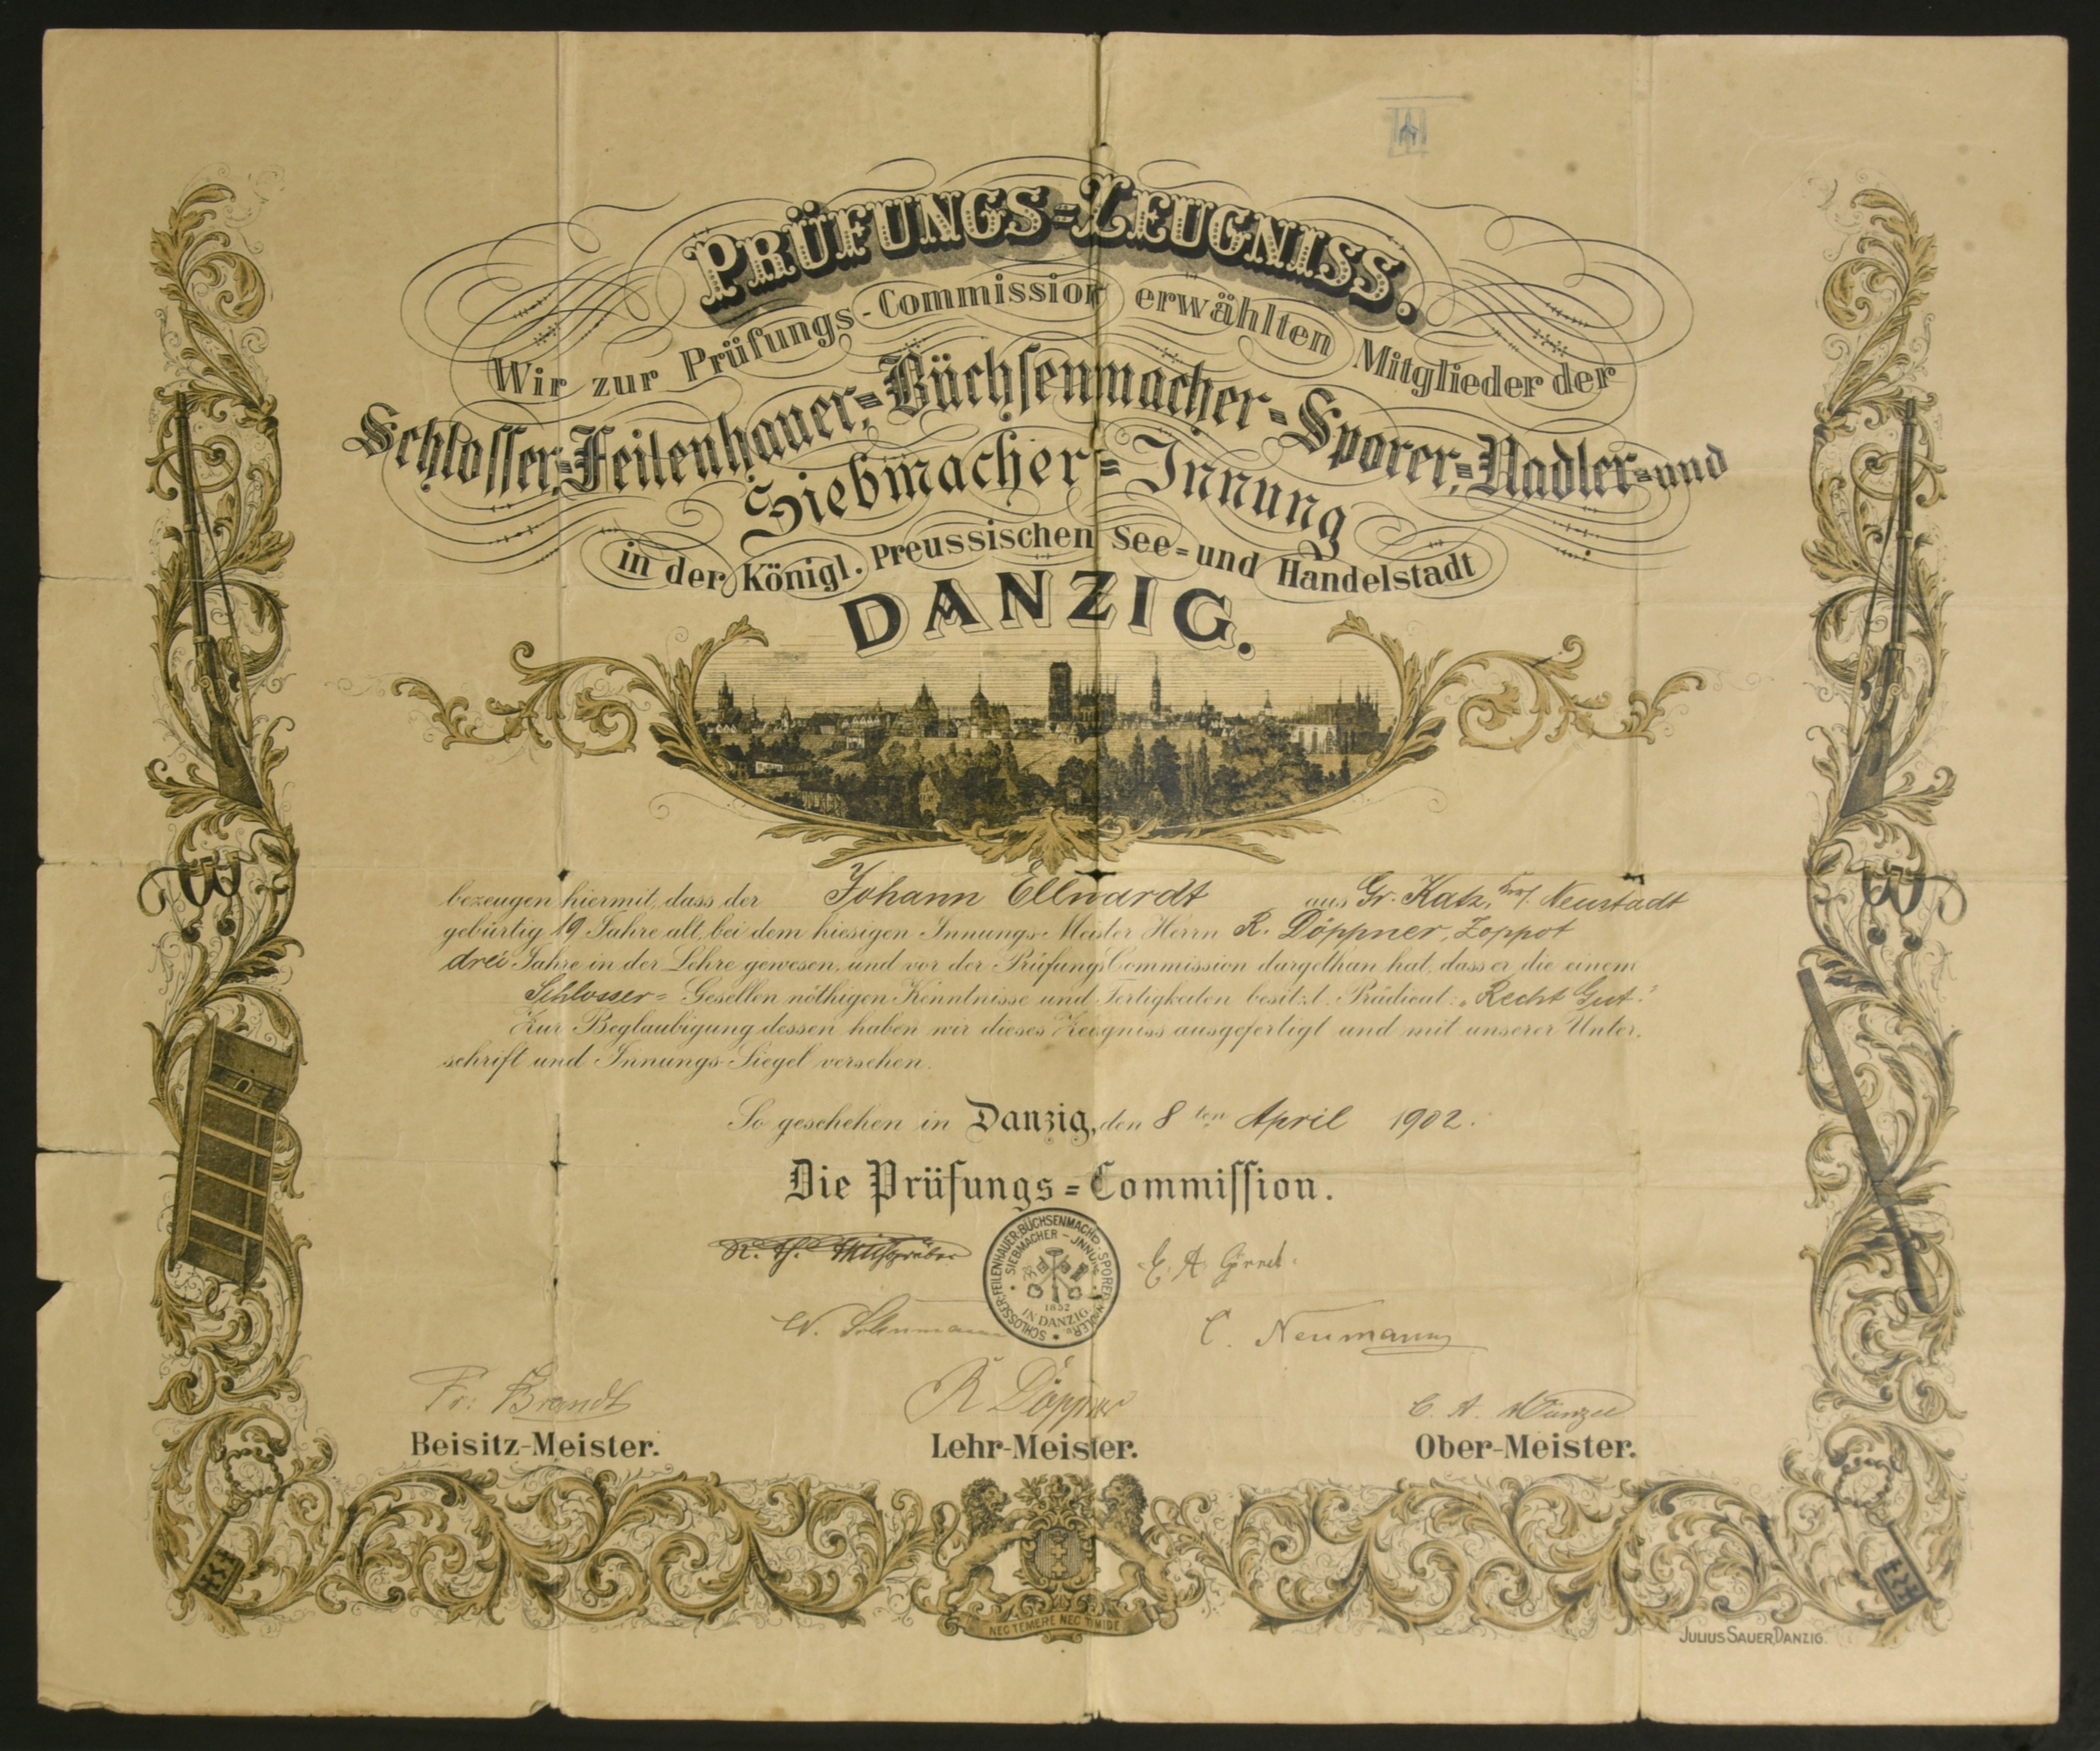 PRÜFUNGS=ZEUGNISS.
Wir zur Prüfungs-Commission erwählten Mitglieder der
Schlosser,=Feilenhauer,=Büchsenmacher=Sporer,=Nadler=und
Siebmacher=Innung
in der Königl. Preussischen See=und Handelstadt
DANZIG.
bezeugen hiermit, dass der Johann Ellwardt aus Gr. Katz, Neustadt
gebürtig 19 Jahre alt, bei dem hiesigen Innungs-Meister Herrn R. Döppner, Zoppot
drei Jahre in der Lehre gewesen, und vor der Prüfungs Commission dargethan hat, dass er die einem
Schlosser= Gesellen nöthigen Kenntnisse und Fertigkeiten besitzt. Prädicat: „Recht Gut."
Zur Beglaubigung dessen haben wir dieses Zeugniss ausgefertigt und mit unserer Unter-
schrift und Innungs-Siegel versehen.
So geschehen in Danzig, den 8 ten April 1902.
Die Prüfungs=Commission.
SCHLOSSER-FEILENHAUER-BÜCHSENMACHER-SPORER-NADLER u.
SIEBMACHER-INNUNG
1852
IN DANZIG
E. A.
W. C. Neumann
Fr. Brandt R Döppner C. A.
Beisitz-Meister. Lehr-Meister. Ober-Meister.
NEC TEMERE NEC TIMIDE
JULIUS SAUER, DANZIG.